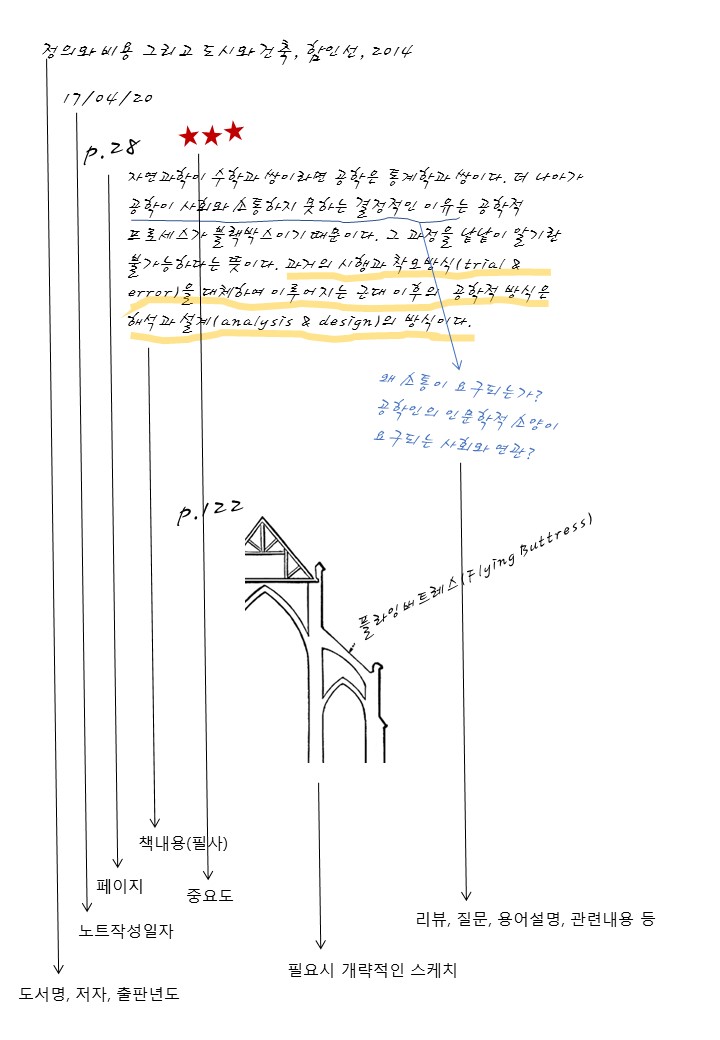 정의와 비용 그리고 도시와 건축, 함인선, 2014
17/04/20
p.28
자연과학이 수학과 쌍이라면 공학은 통계학과 쌍이다. 더 나아가
공학이 사회와 소통하지 못하는 결정적인 이유는 공학적
프로세스가 블랙박스이기 때문이다. 그 과정을 낱낱이 알기란
불가능하다는 뜻이다. 과거의 시행과 착오방식(trial &
error)을 대체하여 이루어지는 근대 이후의 공학적 방식은
해석과 설계(analysis & design)의 방식이다.
왜 소통이 요구되는가?
공학인의 인문학적 소양이
요구되는 사회와 연관?
p.122
플라잉버트레스(Flying Buttress)
책내용(필사)
페이지
중요도
리뷰, 질문, 용어설명, 관련내용 등
노트작성일자
필요시 개략적인 스케치
도서명, 저자, 출판년도